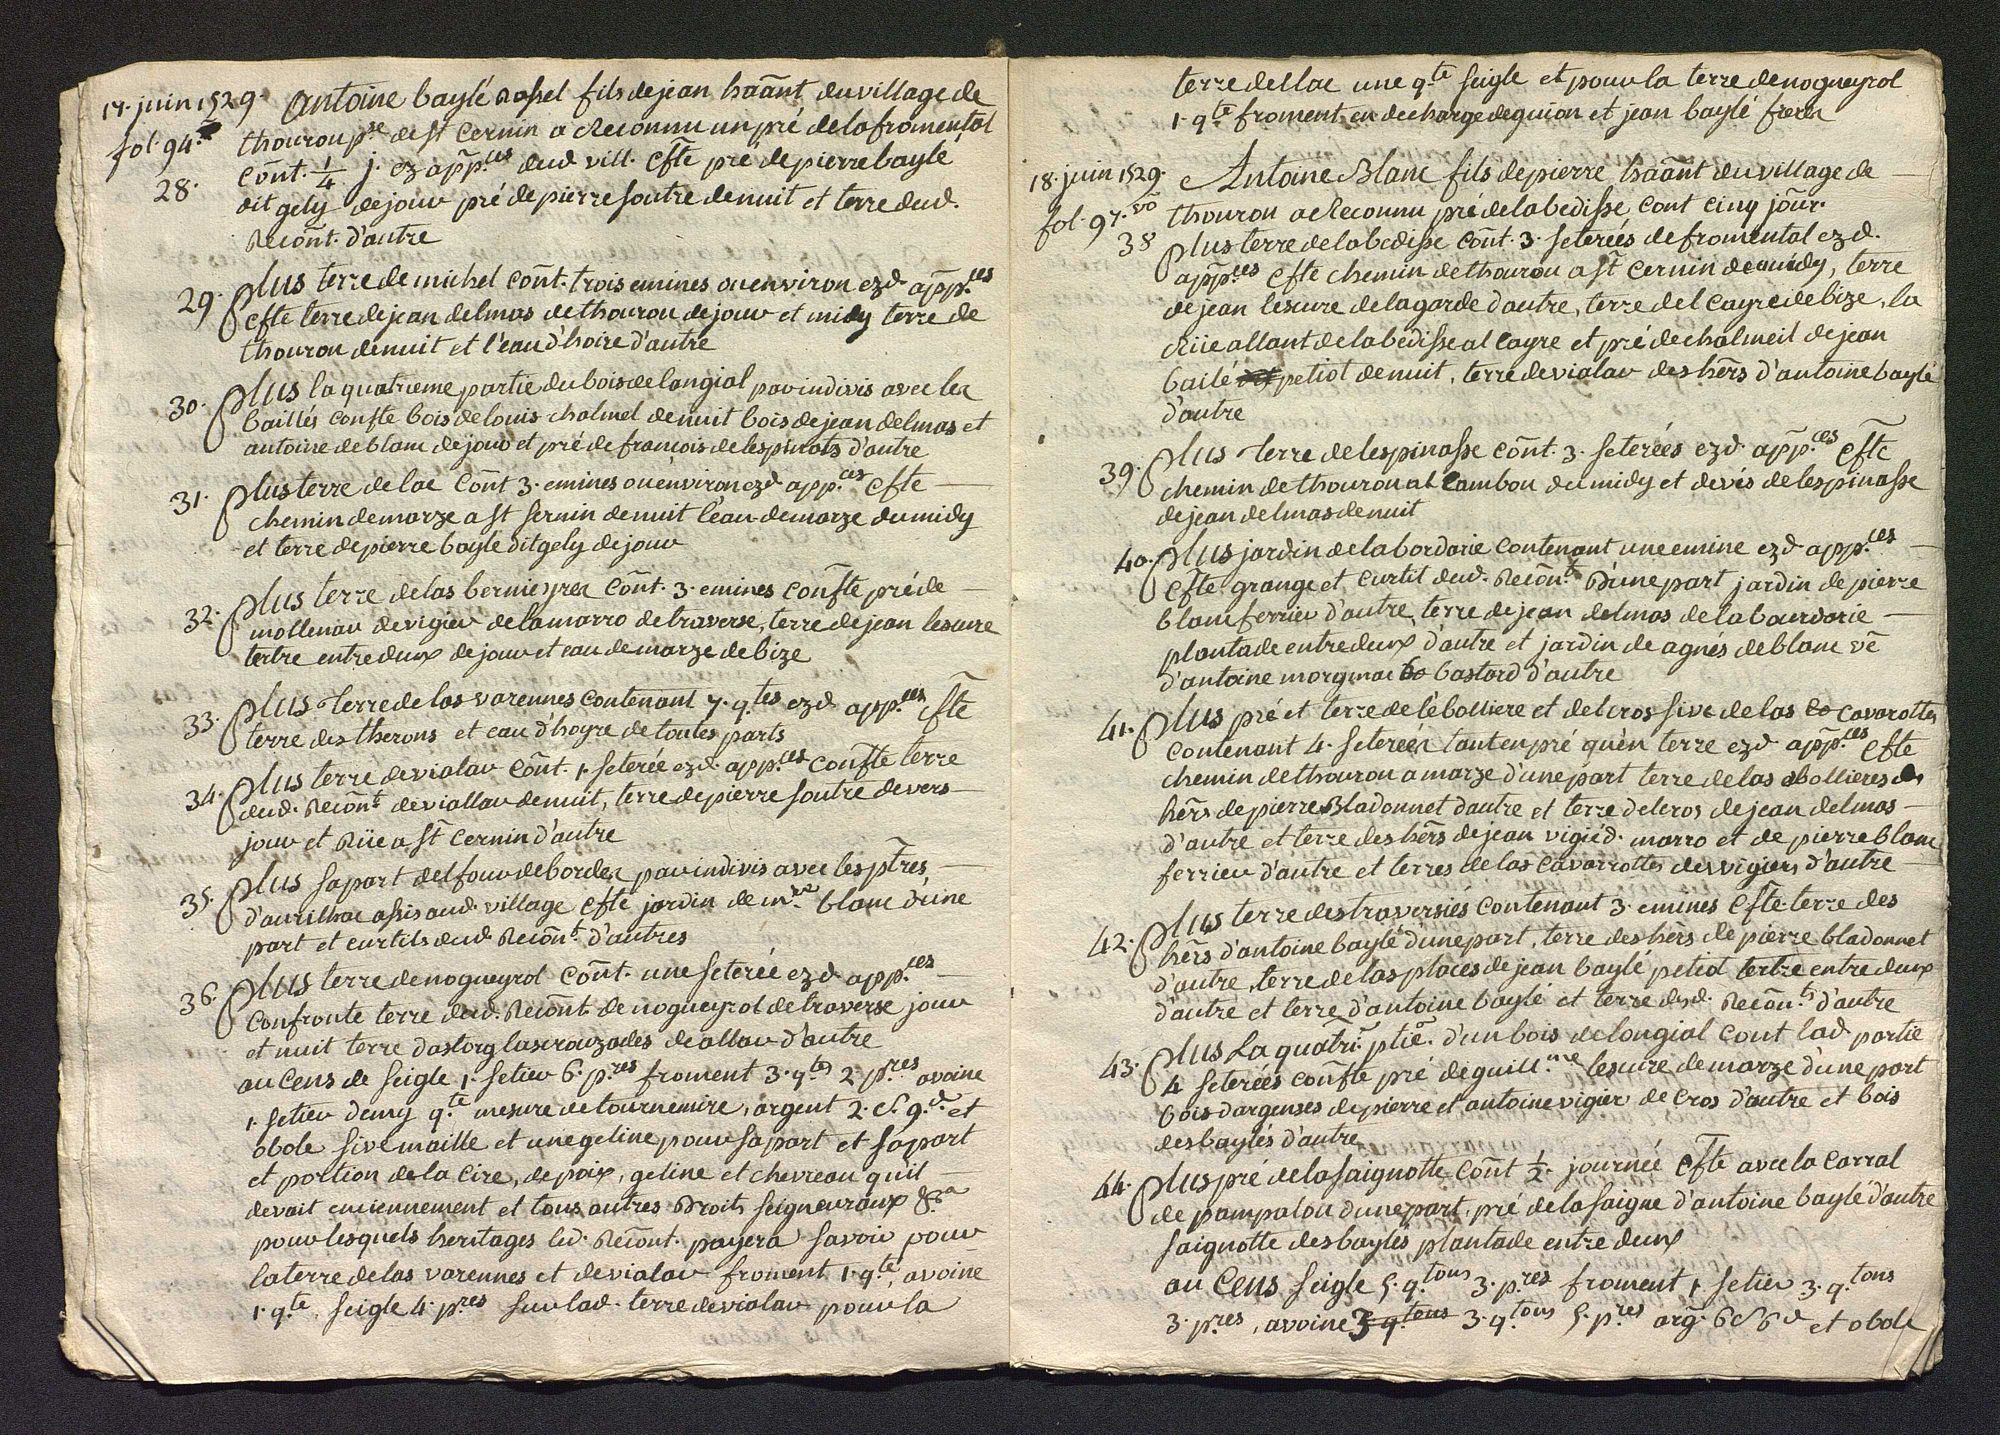 17. juin 1529. Antoine baylé rossel fils de jean haãnt du village de
fol. 94. thouron pse de st Cernin a Reconnu un pré de la fromental
28. cont. 1/4 j. ez app.ces dud vill. cfte pré de pierre baylé
dit gely de jour pré de pierre soutre de nuit et terre dud.
Recont. d'autre
29. plus terre de michel cont. trois emines ou environ ezd app.ces
cfte terre de jean delmas de thouron de jour et midy terre de
thouron de nuit et l'eau d'hoire d'autre
30. plus la quatrieme partie du bois de longial par indivis avec les
baillés confte bois de louis chalmel de nuit bois de jean delmas et
antoine de blanc de jour et pré de françois de lespinats d'autre
31. plus terre de lac cont 3. emines ou environ ezd app.ces cfte
chemin de marze a st sernin de nuit l'eau de marze du midy
et terre de pierre bayle dit gely de jour
32. plus terre de las bernieyres cont. 3. emines confte pré de
mollenau de vigier de la marro de traverse, terre de jean lescure
tertre entre deux de jour et eau de marze de bize
33. plus terre de las varennes contenant 7. q.tes ezd app.ces cfte
terre des therons et eau d'hoyre de toutes parts
34. plus terre de vialar cont. 1. seterée ezd. app.ces confte terre
dud. Recont. de viallar de nuit, terre de pierre soutre devers
jour et Rüe a st Cernin d'autre
35. plus sa part del four de bordes par indivis avec les ptres
d'aurilhac assis aud. village cfte jardin de blanc d'une
part et curtils dud. Recont. d'autres
36. plus terre de nogueyrol cont. une seterée ezd app.ces
confronte terre dud. Recont. de nogueyrol de traverse jour
et nuit terre dastorg lascrouzades de allau d'autre
au Cens de seigle 1. setier 6. p.res froment 3. q.tes 2 p.res avoine
1. setier demy q.te mesure de tournemire, argent 2. s. 9. d. et
obole sive maille et une geline pour sa part et sa part
et portion de la cire, de poix, geline et chevreau qu'il
devait enciennement et tous autres Droits seigneuraux &a
pour lesquels heritages led. Recont. payera savoir pour
la terre de las varennes et de vialar froment 1. q.te, avoine
1. q.te, seigle 4. p.res sur lad. terre de vialar pour la
terre de llac une q.te seigle et pour la terre de nogueyrol
1. q.te froment en decharge de guion et jean baylé freres
18. juin 1529. Antoine Blanc fils de pierre haãnt du village de
fol. 97. vo thouron a Reconnu pré de la bedisse cont cinq jour.
38 plus terre de la bedisse cont. 3. seterées de fromental ezd.
app.ces cfte chemin de thouron a st Cernin de midy, terre
de jean lescure de lagarde d'autre, terre del cayre de bize, la
Rüe allant de la bedisse al cayre et pré de chalmeil de jean
bailé dit petiot de nuit, terre de vialar des hérs d'antoine baylé
d'autre
39. plus terre de lespinasse cont. 3. seterées ezd. app.ces cfte
chemin de thouron al Cambou de midy et devés de lespinasse
de jean delmas de nuit
40. plus jardin de la bordarie contenant une emine ezd app.ces
cfte grange et curtil dud. Recont D'une part jardin de pierre
blanc ferrier d'autre, terre de jean delmas de la bourdarie
plantade entre deux d'autre et jardin de agnés de blanc ve
d'antoine morginac bastard d'autre
41. plus pré et terre de lèbolliere et del cros sive de las ca cavarottes
contenant 4. seterées tant en pré qu'en terre ezd. app.ces cfte
chemin de thouron a marze d'une part terre de las abollieres de
hérs de pierre Bladonnet dautre et terre del cros de jean delmas
d'autre et terre des hérs de jean vigié d. marro et de pierre blanc
ferrier d'autre et terres de las cavarrottes des vigiers d'autre
42. plus terre des traversiés contenant 3. emines cfte. terre des
hérs d'antoine baylé d'une part, terre des hérs de pierre bladonnet
d'autre, terre de las places de jean baylé petiot tertre entre deux
d'autre et terre d'antoine baylé et terre dud. Recont d'autre
43. plus La quatr. ptie. d'un bois de longial cont lad partie
4 seterées confte pré de guill.me lescure de marze d'une part
bois dargenses de pierre et antoine vigier de Cros d'autre et bois
des baylés d'autre
44. plus pré de la saignotte cont 1/2. journée cfte avec la Carral
de pampalou d'une part, pré de la saigne d'antoine bayle d'autre
saignotte des bayles plantade entre deux
au Cens seigle 5. q.tons 3. p.res froment 1 setier 3. q.tons
3. p.res, avoine 3 q.tons 3. q.tons 5. p.res arg. 6 s 6 d et obole